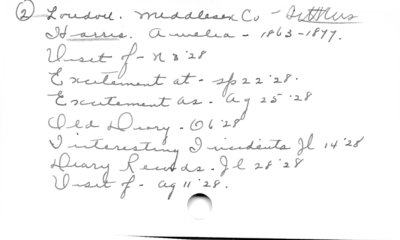 ② London. Middlesex Co - Settlers
Harris. Amelia - 1863-1877.
Visit of - N 3 '28
Excitement at - Sp 22 '28.
Excitement as. Ag 25 '28
Old Diary. O 6 '28
Interesting Incidents Jl 14 '28
Diary Records. Jl 28 '28
Visit of - Ag 11 '28.